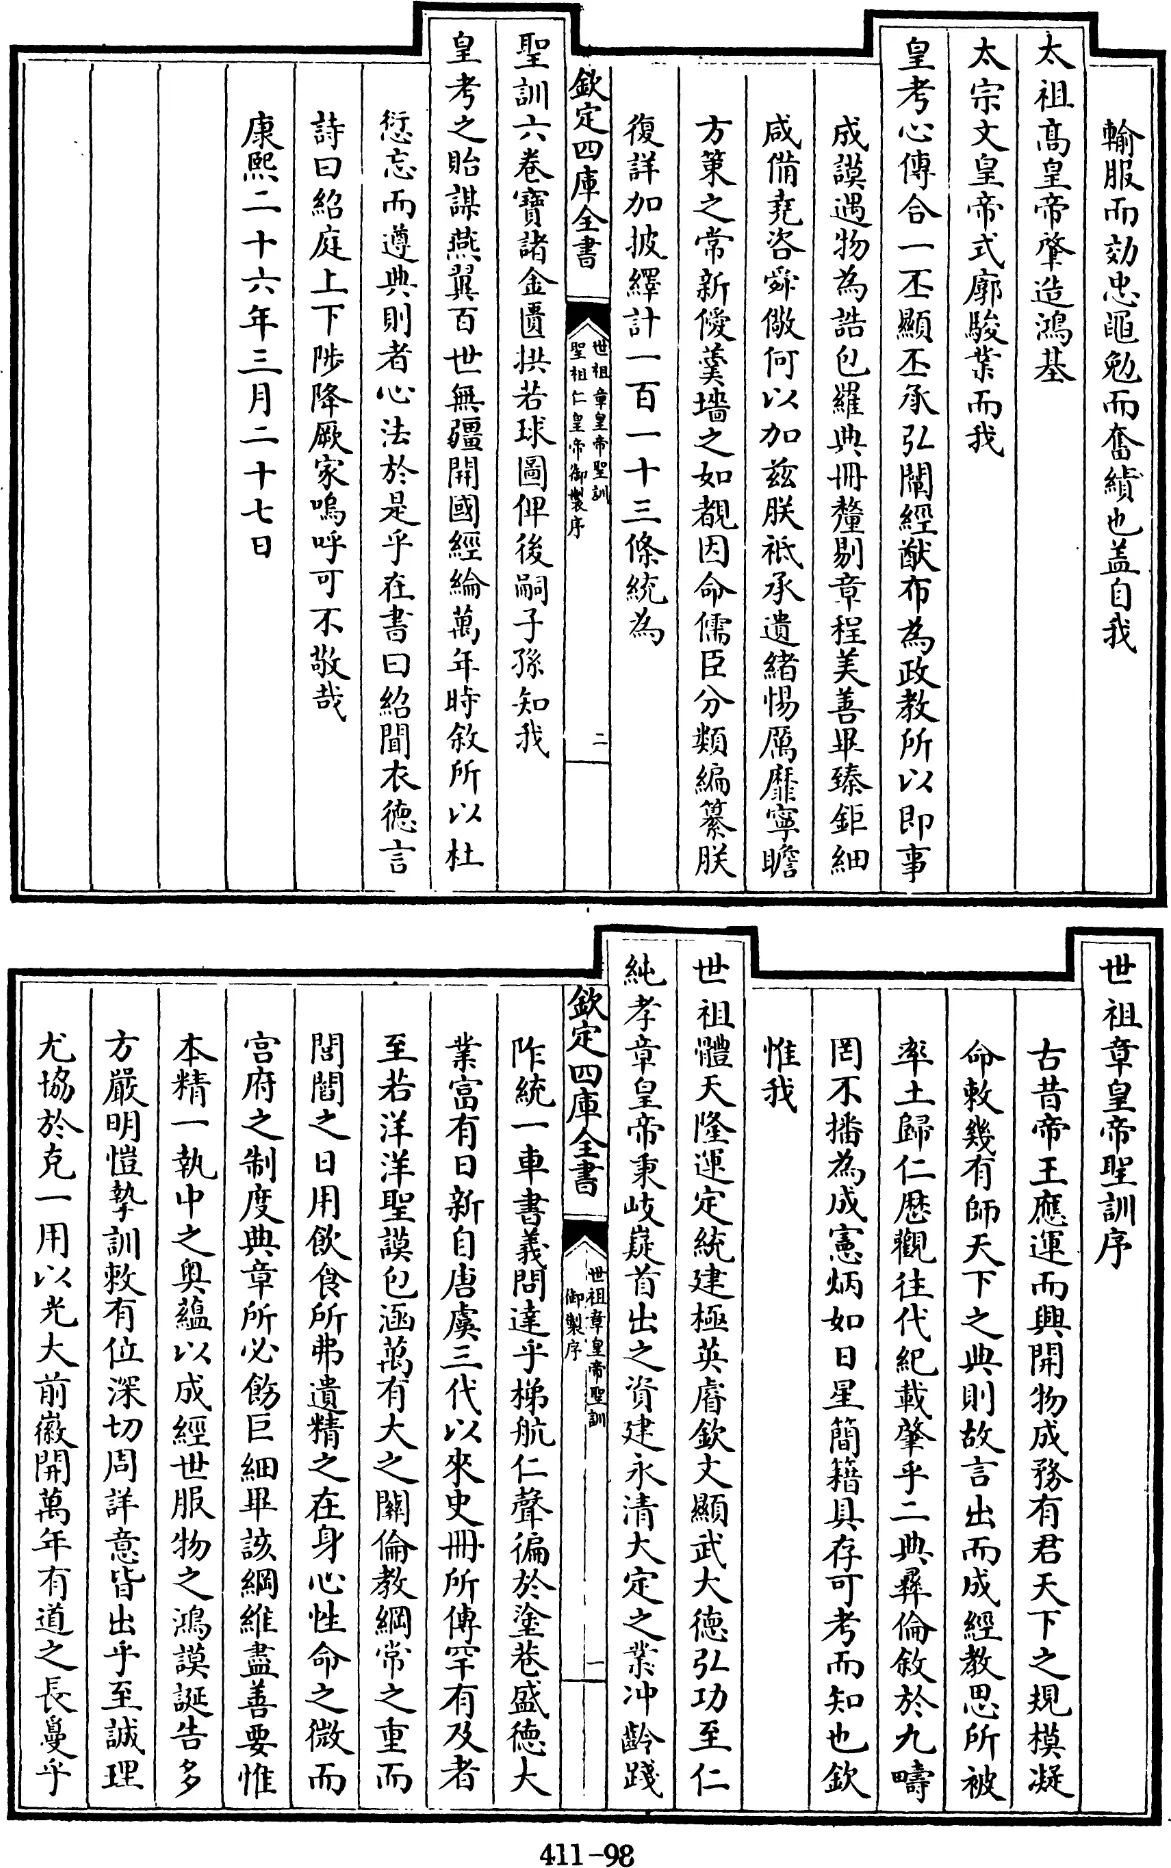 輸服而効忠黽勉而奮績也盖自我
太祖高皇帝肇造鴻基
太宗文皇帝式廓駿業而我
皇考心傳合一丕顯丕承弘闡經猷布為政教所以即事
成謨遇物為誥包羅典冊釐剔章程美善畢臻鉅細
咸備堯咨舜儆何以加兹朕祗承遺緒惕厲靡寧瞻
方策之常新僾羹墻之如覩因命儒臣分類編纂朕
復詳加披繹計一百一十三條統為
欽定四庫全書
世祖章皇帝聖訓
聖祖仁皇帝御製序
二
聖訓六卷寶諸金匱拱若球圖俾後嗣子孫知我
皇考之貽謀燕翼百世無疆開國經綸萬年時敘所以杜
愆忘而遵典則者心法於是乎在書曰紹聞衣德言
詩曰紹庭上下陟降厥家嗚呼可不敬哉
康熙二十六年三月二十七日
世祖章皇帝聖訓序
古昔帝王應運而興開物成務有君天下之規模凝
命敕幾有師天下之典則故言出而成經教思所被
率土歸仁歷觀往代紀載肇乎二典彞倫敘於九疇
罔不播為成憲炳如日星簡籍具存可考而知也欽
惟我
世祖體天隆運定統建極英睿欽文顯武大德弘功至仁
純孝章皇帝秉岐嶷首出之資建永清大定之業冲齡踐
欽定四庫全書
世祖章皇帝聖訓
御製序
一
阼統一車書義問達乎梯航仁聲徧於塗巷盛德大
業富有日新自唐虞三代以來史冊所傳罕有及者
至若洋洋聖謨包涵萬有大之關倫教綱常之重而
閭閻之日用飲食所弗遺精之在身心性命之微而
宫府之制度典章所必飭巨細畢該綱維盡善要惟
本精一執中之奥藴以成經世服物之鴻謨誕告多
方嚴明愷摯訓敕有位深切周詳意皆出乎至誠理
尤協於克一用以光大前徽開萬年有道之長戞乎
411-98